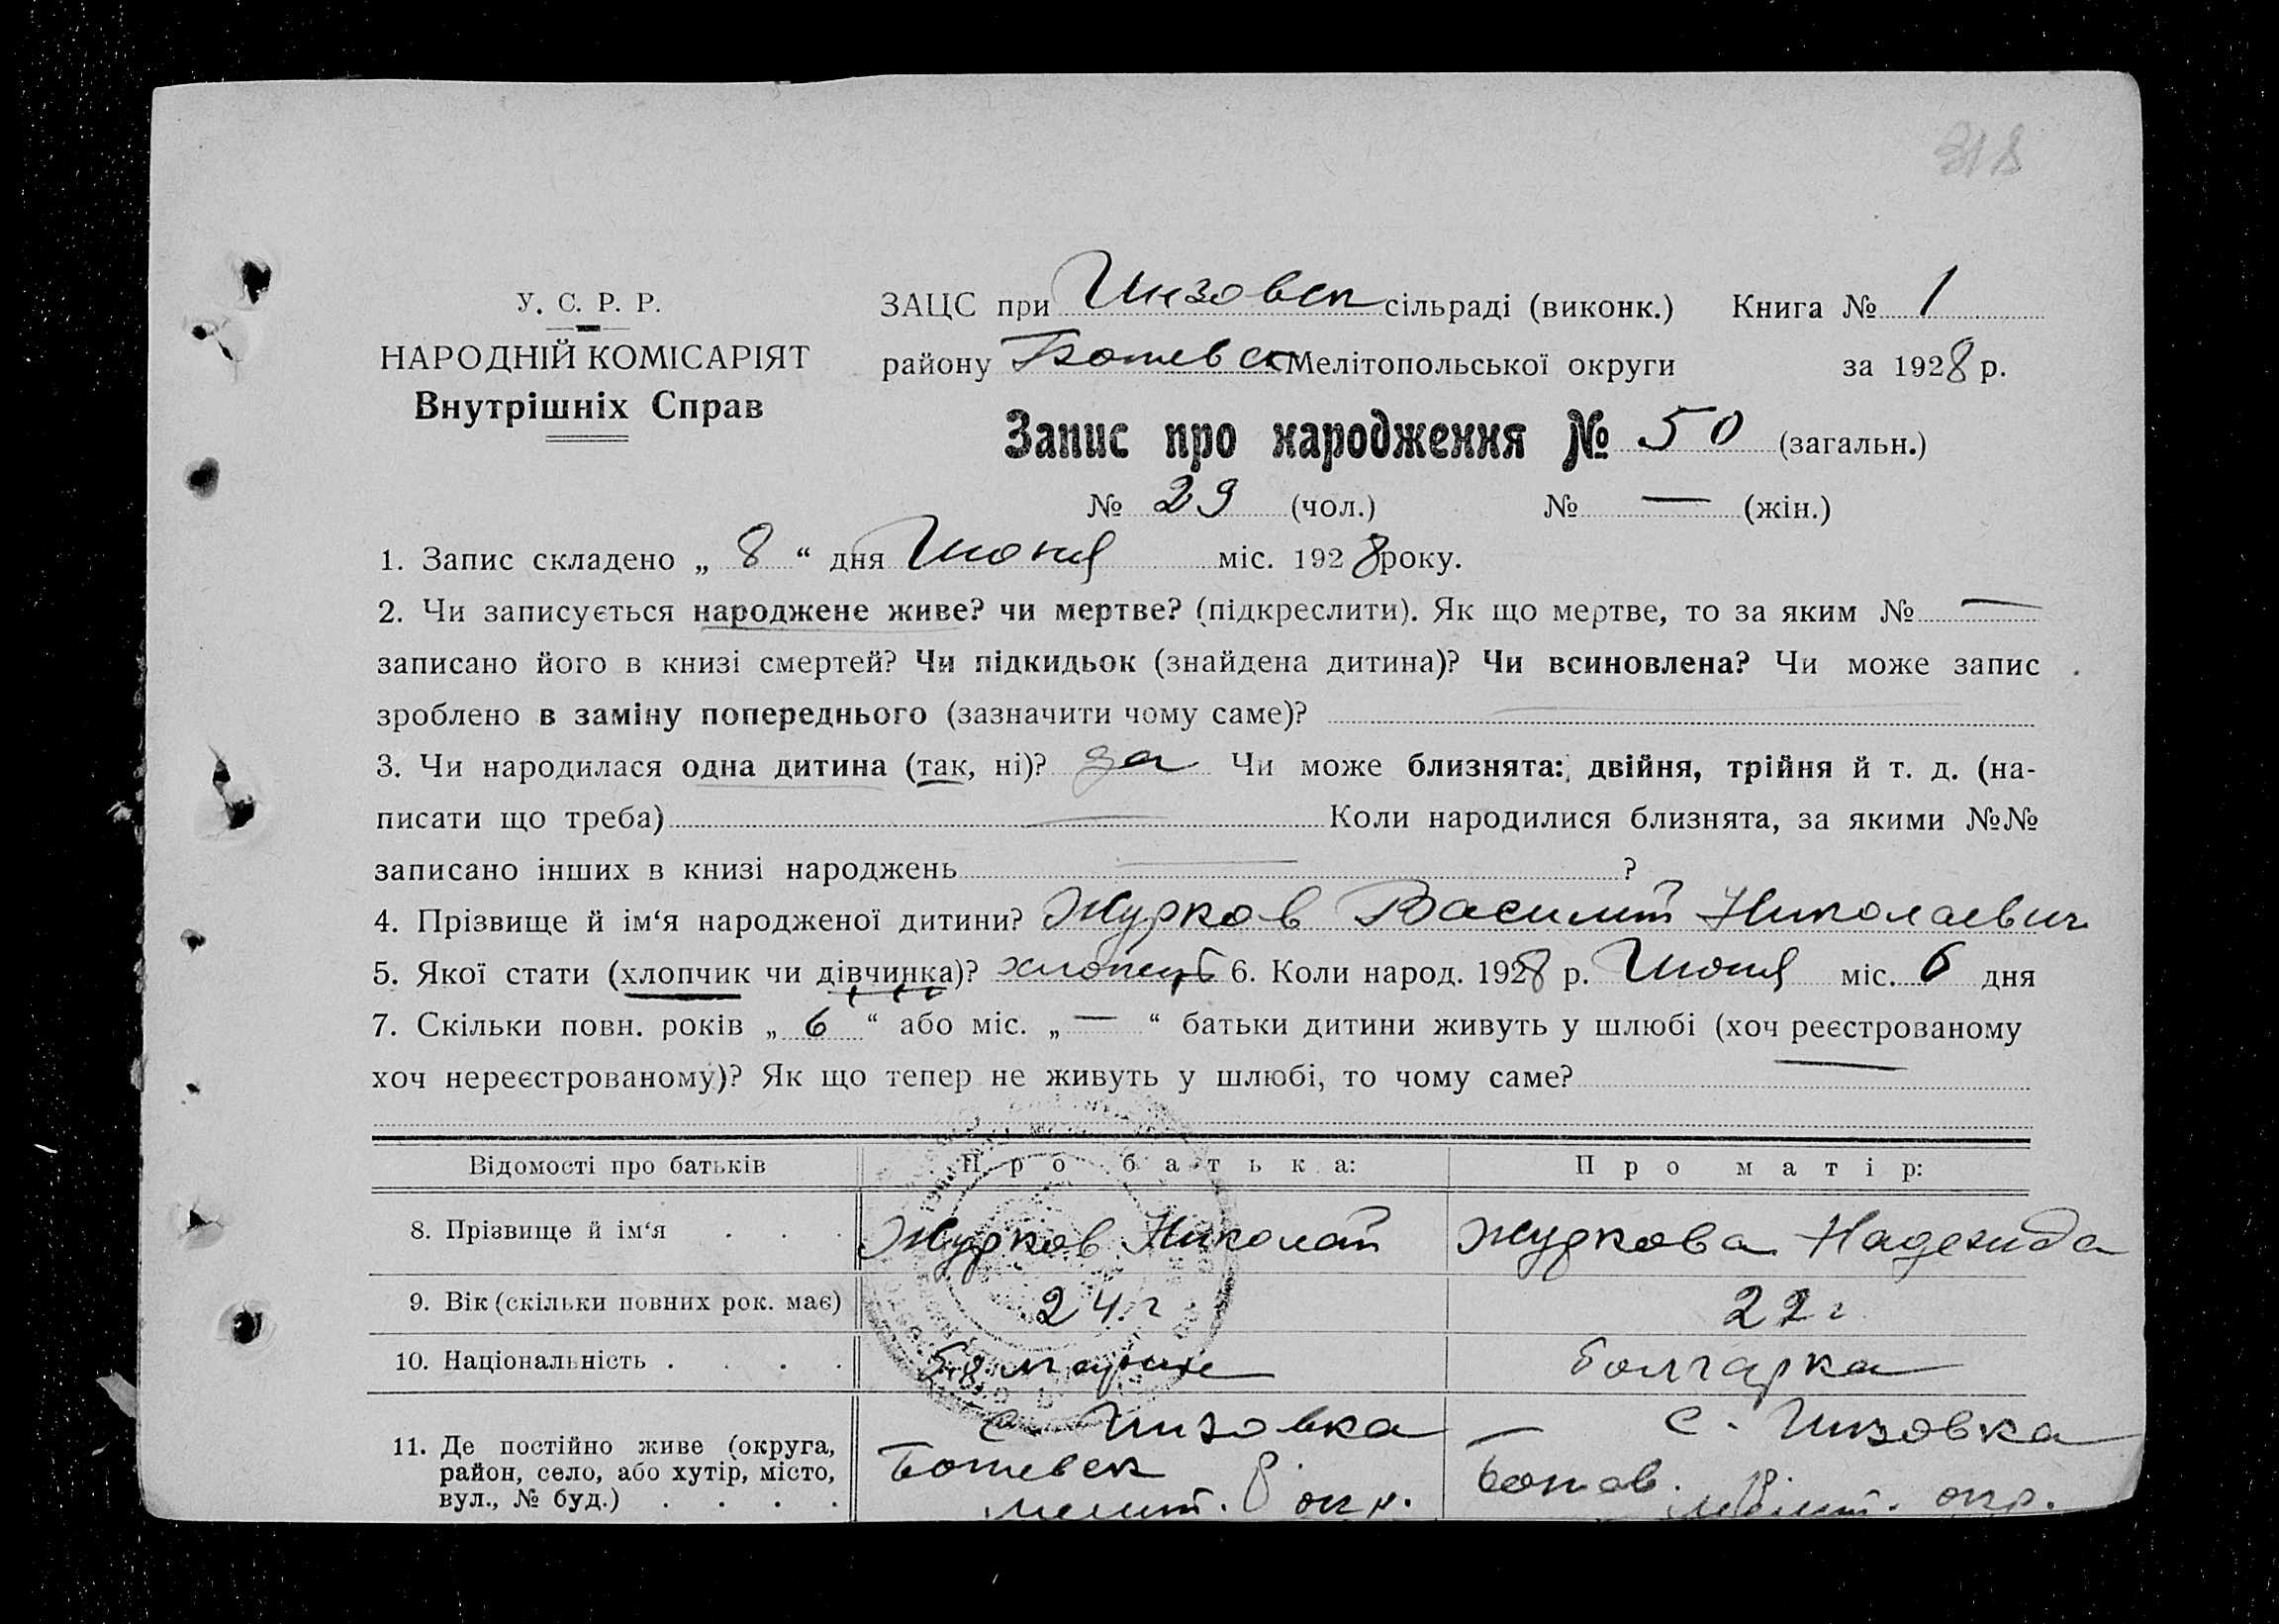 318
У. С. Р. Р.
НАРОДНІЙ КОМІСАРІЯТ
Внутрішніх Справ
ЗАЦС при Гизовск сільраді (виконк.) Книга № 1
району Ботевск Мелітопольської округи за 1928 р.
Запис про народження № 50 (загальн.)
№ 29 (чол.) № — (жін.)
1. Запис складено „ 8 “ дня Июня міс. 1928 року.
2. Чи записується народжене живе? чи мертве? (підкреслити). Як що мертве, то за яким № —
записано його в книзі смертей? Чи підкидьок (знайдена дитина)? Чи всиновлена? Чи може запис
зроблено в заміну попереднього (зазначити чому саме)?
3. Чи народилася одна дитина (так, ні)? да Чи може близнята: двійня, трійня й т. д. (на-
писати що треба) — Коли народилися близнята, за якими №№
записано інших в книзі народжень — ?
4. Прізвище й ім‘я народженої дитини? Журков Василий Николаевич
5. Якої стати (хлопчик чи дівчинка)? хлопець 6. Коли народ. 1928 р. Июня міс. 6 дня
7. Скільки повн. років „ 6 “ або міс. „ — “ батьки дитини живуть у шлюбі (хоч реєстрованому
хоч нереєстрованому)? Як що тепер не живуть у шлюбі, то чому саме? —
Відомості про батьків Про батька: Про матір:
8. Прізвище й ім‘я . . . Журков Николай Журкова Надежда
9. Вік (скільки повних рок. має) 24 г 22 г
10. Національність . . . . Болгарка
11. Де постійно живе (округа, с. Гизовка с. Гизовка
район, село, або хутір, місто, Ботевск р. Ботев. р.
вул., № буд.) . . . . мелит. окр. мелит. окр.